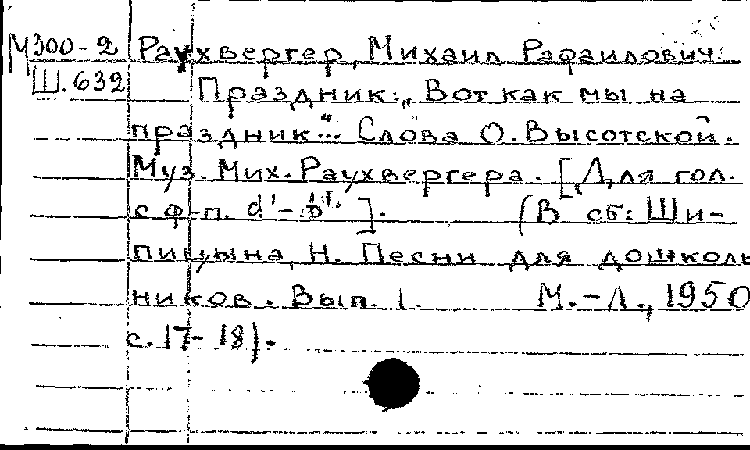 М300-2 Раухвергер, Михаил Рафаилович.
Ш.632 Праздник: „Вот как мы на
праздник"... Слова О. Высотской.
Муз. Мих. Раухвергера. [Для гол.
с ф-п. d'- ]. (В сб: Ши-
пицына, Н. Песни для дошколь
ников. Вып. 1. М.-Л., 1950
с. 17-18).